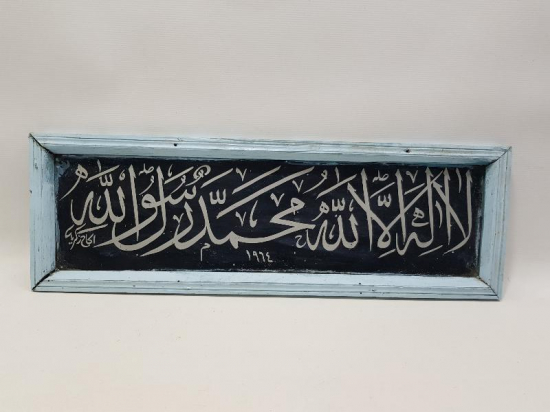 لا إله إلا الله محمد رسول الله
١٩٦٤ م